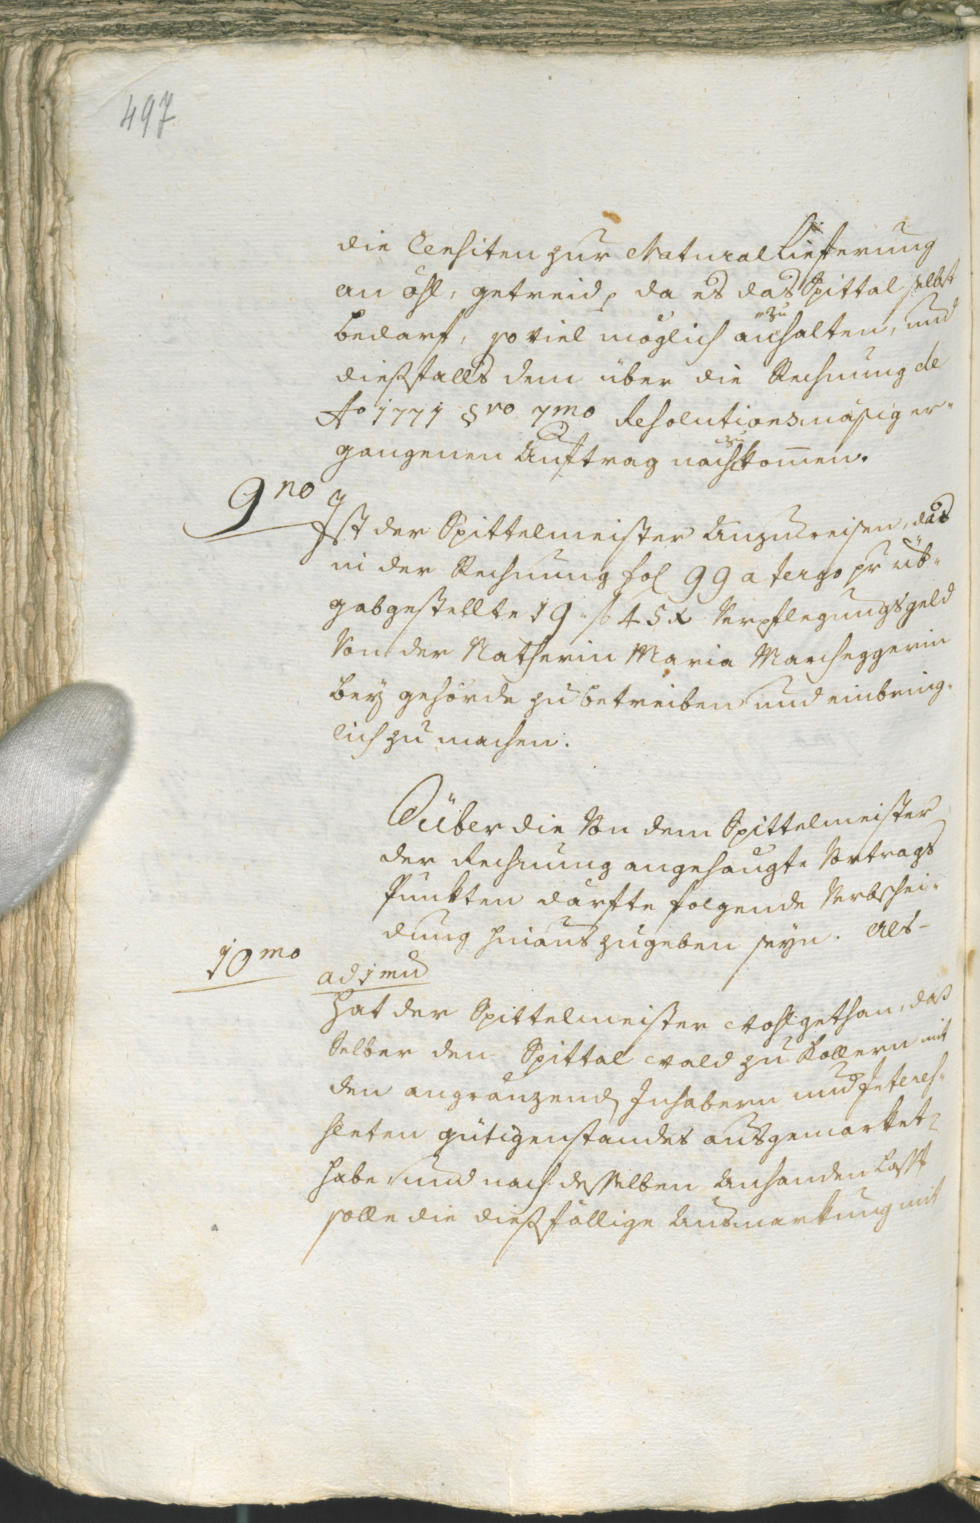 497
die Censiten zur Natural Lieferung
an öhl, getreid, da es das Spittal selbst
bedarf, so viel möglich anzuhalten, und
dießfalls dem über die Rechnung de
Ao 1771 §vo 7mo Resolutionsmäsig er-
gangenen Auftrag nachzukom̄en.
9no
Ist der Spittelmeister Anzuweisen, das
in der Rechnung fol 99 a tergo pr üb-
gabgestellte 19 f 45 x Verpflegungsgeld
Von der Natherin Maria Marcheggerin
bey gehörde zu betreiben und einbring-
lich zu machen.
Über die Von dem Spittelmeister
der Rechnung angehängte Vortrags
Punkten därfte folgende Verbschei-
dung hinaus zugeben seyn. Als-
10mo
ad 1mu
Hat der Spittelmeister Wohlgethan, daß
Selber den Spittal Wald zu Kollern mit
den angränzend Inhabern und Interes-
sleten gütigenstandes ausgemarket
habe, und nach desselben Anhanden
solle die dießfällige Ausmarkung mit